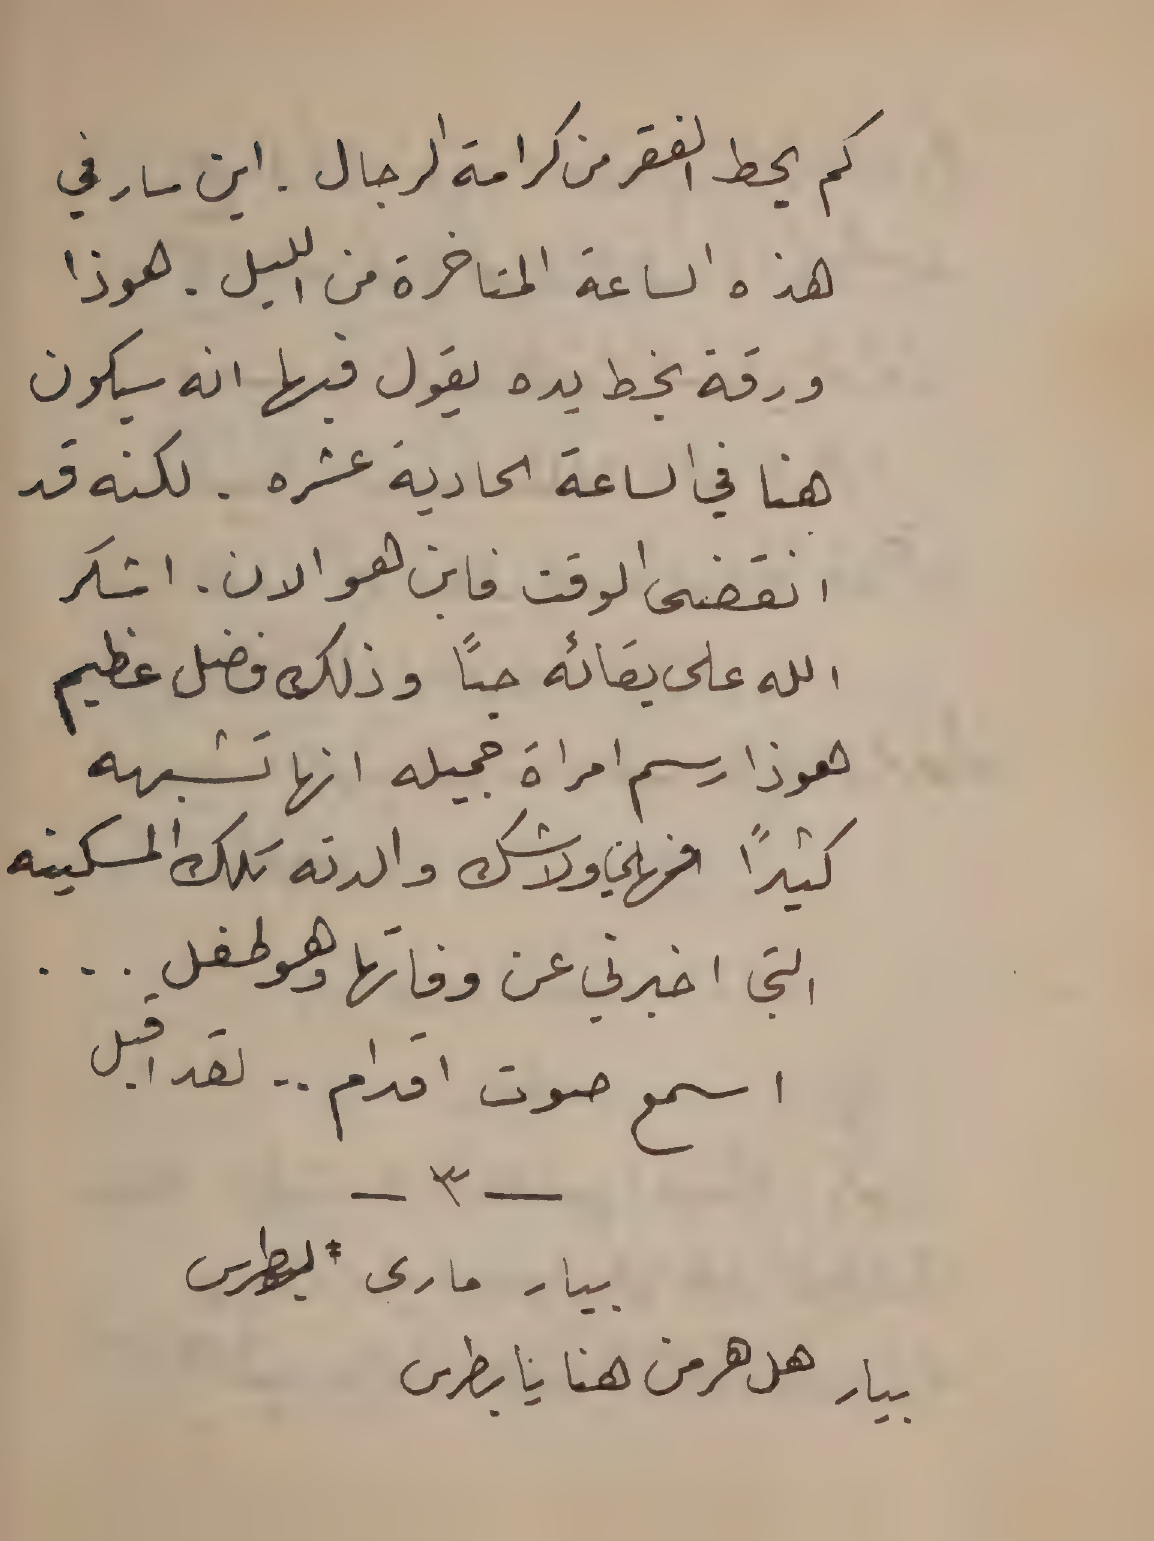 كم يحط الفقر من كرامة الرجال . اين سار في
هذه الساعة المتاخرة من الليل . هوذا
ورقة بخط يده يقول فيها انه سيكون
هنا في الساعة الحادية عشره . لكنه قد
انقضى الوقت فاين هو الان . اشكر
الله على بقائه حيًا وذلك فضل عظيم
هوذا رسم امراة جميله انها تشبهه
كثيرًا فهي ولاشك والدته تلك المسكينه
التي اخبرني عن وفاتها وهو طفل ...
اسمع صوت اقدام .. لقد اقبل
— ٣ —
بيار مارى * بطرس
بيار هل هر من هنا يا بطرس